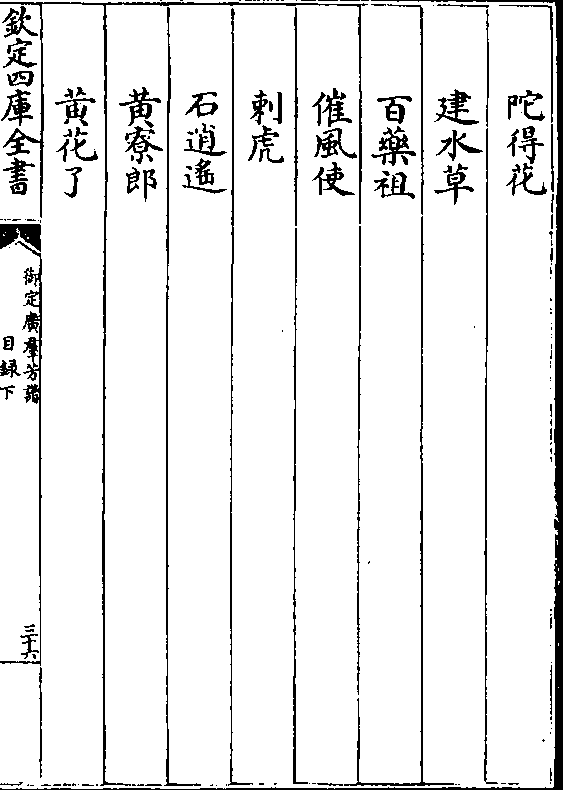 陀得花
建水草
百藥祖
催風使
刺虎
石逍遙
黃寮郎
黃花了
欽定四庫全書
御定廣羣芳譜
目録下
三十六